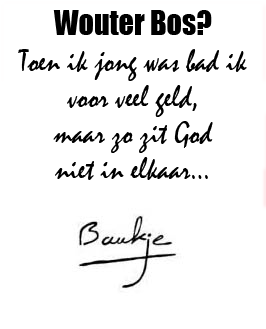 Wouter Bos?
Toen ik jong was bad ik
voor veel geld,
maar zo zit God
niet in elkaar...
Baukje